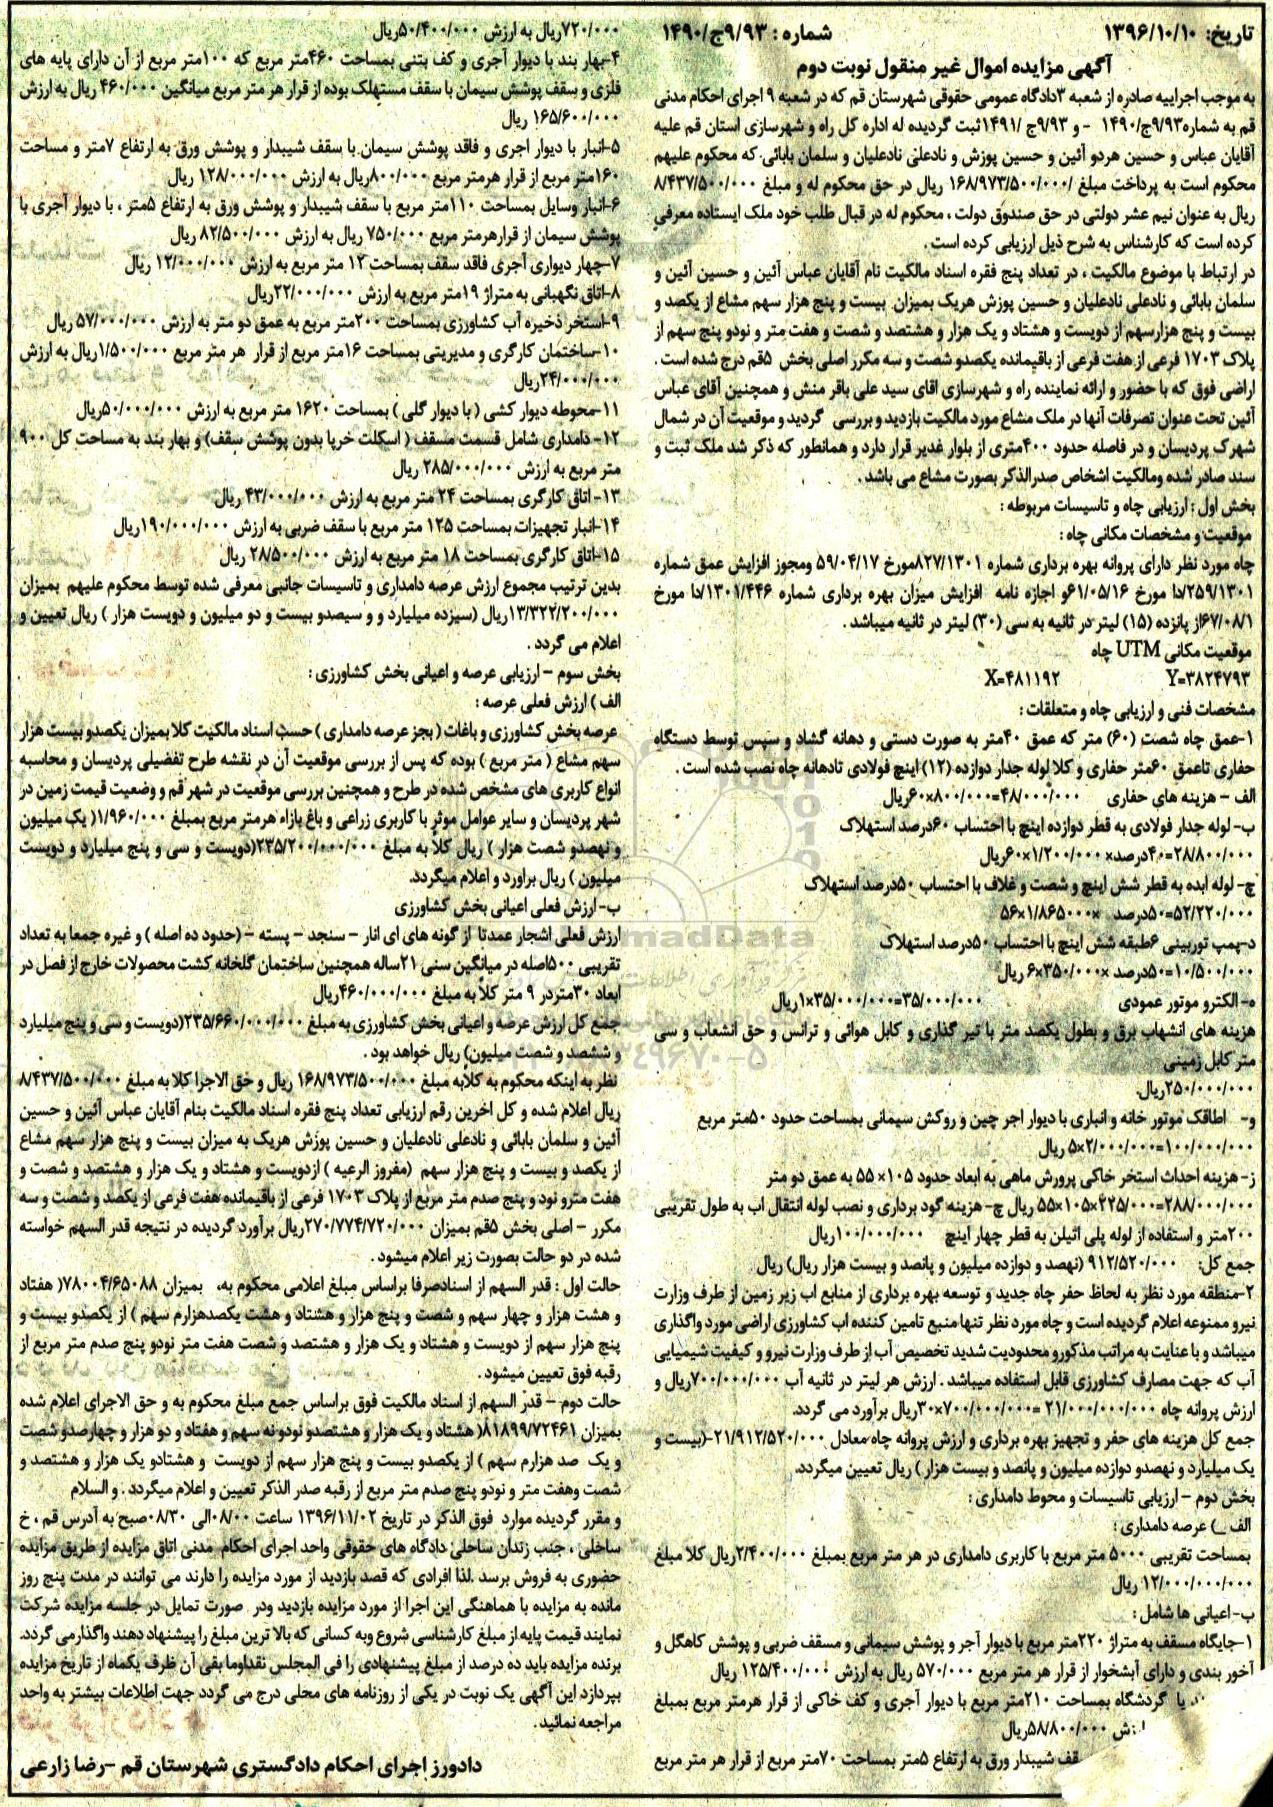 تاریخ: ۱۳۹۶/۱۰/۱۰ شماره: ۹/۹۳ج/۱۴۹۰
آگهی مزایده اموال غیر منقول نوبت دوم
به موجب اجراییه صادره از شعبه ۳دادگاه عمومی حقوقی شهرستان قم که در شعبه ۹ اجرای احکام مدنی
قم به شماره۹/۹۳ج/۱۴۹۰ - و ۹/۹۳ج /۱۴۹۱ثبت گردیده له اداره کل راه و شهرسازی استان قم علیه
آقایان عباس و حسین هردو آئین و حسین پوزش و نادعلی نادعلیان و سلمان بابائی که محکوم علیهم
محکوم است به پرداخت مبلغ /۱۶۸/۹۷۳/۵۰۰/۰۰۰ ریال در حق محکوم له و مبلغ ۸/۴۳۷/۵۰۰/۰۰۰
ریال به عنوان نیم عشر دولتی در حق صندوق دولت ، محکوم له در قبال طلب خود ملک ایستاده معرفی
کرده است که کارشناس به شرح ذیل ارزیابی کرده است .
در ارتباط با موضوع مالکیت ، در تعداد پنج فقره اسناد مالکیت نام آقایان عباس آئین و حسین آئین و
سلمان بابائی و نادعلی نادعلیان و حسین پوزش هریک بمیزان بیست و پنج هزار سهم مشاع از یکصد و
بیست و پنج هزارسهم از دویست و هشتاد و یک هزار و هشتصد و شصت و هفت متر و نودو پنج سهم از
پلاک ۱۷۰۳ فرعی از هفت فرعی از باقیمانده یکصدو شصت و سه مکرر اصلی بخش ۵قم درج شده است .
اراضی فوق که با حضور و ارائه نماینده راه و شهرسازی اقای سید علی باقر منش و همچنین آقای عباس
آئین تحت عنوان تصرفات آنها در ملک مشاع مورد مالکیت بازدید و بررسی گردید و موقعیت آن در شمال
شهرک پردیسان و در فاصله حدود ۴۰۰متری از بلوار غدیر قرار دارد و همانطور که ذکر شد ملک ثبت و
سند صادر شده ومالکیت اشخاص صدرالذکر بصورت مشاع می باشد .
بخش اول : ارزیابی چاه و تاسیسات مربوطه :
موقعیت و مشخصات مکانی چاه :
چاه مورد نظر دارای پروانه بهره برداری شماره ۸۲۷/۱۳۰۱مورخ ۵۹/۰۴/۱۷ ومجوز افزایش عمق شماره
۲۵۹/۱۳۰۱/دا مورخ ۶۱/۰۵/۱۶و اجازه نامه افزایش میزان بهره برداری شماره ۱۳۰۱/۴۴۶/دا مورخ
۶۷/۰۸/۱از پانزده (۱۵) لیتر در ثانیه به سی (۳۰) لیتر در ثانیه میباشد .
موقعیت مکانی UTM چاه
Y=۳۸۲۴۷۹۳ X=۴۸۱۱۹۲
مشخصات فنی و ارزیابی چاه و متعلقات :
۱-عمق چاه شصت (۶۰) متر که عمق ۴۰متر به صورت دستی و دهانه گشاد و سپس توسط دستگاه
حفاری تاعمق ۶۰متر حفاری و کلا لوله جدار دوازده (۱۲) اینچ فولادی تادهانه چاه نصب شده است .
الف – هزینه های حفاری ۴۸/۰۰۰/۰۰۰=۸۰۰/۰۰۰×۶۰ریال
ب- لوله جدار فولادی به قطر دوازده اینچ با احتساب ۶۰درصد استهلاک
۲۸/۸۰۰/۰۰۰=۴۰درصد× ۱/۲۰۰/۰۰۰×۶۰ریال
ج- لوله ابده به قطر شش اینچ و شصت و غلاف با احتساب ۵۰درصد استهلاک
۵۲/۲۲۰/۰۰۰=۵۰درصد ×۱/۸۶۵۰۰۰×۵۶
د-پمپ توربینی ۶طبقه شش اینچ با احتساب ۵۰درصد استهلاک
۱۰/۵۰۰/۰۰۰=۵۰درصد ×۳۵۰/۰۰۰×۶ ریال
ه- الکترو موتور عمودی ۳۵/۰۰۰/۰۰۰=۳۵/۰۰۰/۰۰۰×۱ریال
هزینه های انشهاب برق و بطول یکصد متر با تیر گذاری و کابل هوائی و ترانس و حق انشعاب و سی
متر کابل زمینی
۲۵۰/۰۰۰/۰۰۰ریال.
و- اطاقک موتور خانه و انباری با دیوار اجر چین و روکش سیمانی بمساحت حدود ۵۰متر مربع
۱۰۰/۰۰۰/۰۰۰=۲/۰۰۰/۰۰۰×۵ ریال
ز- هزینه احداث استخر خاکی پرورش ماهی به ابعاد حدود ۱۰۵× ۵۵ به عمق دو متر
۲۸۸/۰۰۰/۰۰۰=۲۲۵/۰۰۰×۱۰۵×۵۵ ریال ج- هزینه گود برداری و نصب لوله انتقال اب به طول تقریبی
۲۰۰متر و استفاده از لوله پلی اتیلن به قطر چهار اینچ ۱۰۰/۰۰۰/۰۰۰ریال
جمع کل: ۹۱۲/۵۲۰/۰۰۰ (نهصد و دوازده میلیون و پانصد و بیست هزار ریال) ریال
۲-منطقه مورد نظر به لحاظ حفر چاه جدید و توسعه بهره برداری از منابع اب زیر زمین از طرف وزارت
نیرو ممنوعه اعلام گردیده است و چاه مورد نظر تنها منبع تامین کننده اب کشاورزی اراضی مورد واگذاری
میباشد و با عنایت به مراتب مذکورو محدودیت شدید تخصیص آب از طرف وزارت نیرو و کیفیت شیمیایی
آب که جهت مصارف کشاورزی قابل استفاده میباشد . ارزش هر لیتر در ثانیه آب ۷۰۰/۰۰۰/۰۰۰ریال و
ارزش پروانه چاه ۲۱/۰۰۰/۰۰۰/۰۰۰ =۷۰۰/۰۰۰/۰۰۰×۳۰ریال برآورد می گردد.
جمع کل هزینه های حفر و تجهیز بهره برداری و ارزش پروانه چاه معادل ۲۱/۹۱۲/۵۲۰/۰۰۰-(بیست و
یک میلیارد و نهصدو دوازده میلیون و پانصد و بیست هزار ) ریال تعیین میگردد.
بخش دوم – ارزیابی تاسیسات و محوط دامداری :
الف _) عرصه دامداری :
بمساحت تقریبی ۵۰۰۰ متر مربع با کاربری دامداری در هر متر مربع بمبلغ ۲/۴۰۰/۰۰۰ریال کلا مبلغ
۱۲/۰۰۰/۰۰۰/۰۰۰ ریال
ب- اعیانی ها شامل :
۱-جایگاه مسقف به متراژ ۲۲۰متر مربع با دیوار آجر و پوشش سیمانی و مسقف ضربی و پوشش کاهگل و
آخور بندی و دارای آبشخوار از قرار هر متر مربع ۵۷۰/۰۰۰ ریال به ارزش ۱۲۵/۴۰۰/۰۰۰ ریال
یا گردشگاه بمساحت ۲۱۰متر مربع با دیوار آجری و کف خاکی از قرار هرمتر مربع بمبلغ
ارزش ۵۸/۸۰۰/۰۰۰ریال
سقف شیبدار ورق به ارتفاع ۵متر بمساحت ۷۰متر مربع از قرار هر متر مربع
۷۲۰/۰۰۰ریال به ارزش ۵۰/۴۰۰/۰۰۰ریال
۴-بهار بند با دیوار آجری و کف بتنی بمساحت ۴۶۰متر مربع که ۱۰۰متر مربع از آن دارای پایه های
فلزی و سقف پوشش سیمان با سقف مستهلک بوده از قرار هر متر مربع میانگین ۴۶۰/۰۰۰ ریال به ارزش
۱۶۵/۶۰۰/۰۰۰ ریال
۵-انبار با دیوار اجری و فاقد پوشش سیمان با سقف شیبدار و پوشش ورق به ارتفاع ۷متر و مساحت
۱۶۰متر مربع از قرار هرمتر مربع ۸۰۰/۰۰۰ریال به ارزش ۱۲۸/۰۰۰/۰۰۰ ریال
۶-انبار وسایل بمساحت ۱۱۰متر مربع با سقف شیبدار و پوشش ورق به ارتفاع ۵متر ، با دیوار آجری با
پوشش سیمان از قرارهرمتر مربع ۷۵۰/۰۰۰ ریال به ارزش ۸۲/۵۰۰/۰۰۰ ریال
۷-چهار دیواری آجری فاقد سقف بمساحت ۱۲ متر مربع به ارزش ۱۲/۰۰۰/۰۰۰ ریال
۸-اتاق نگهبانی به متراژ ۱۹متر مربع به ارزش ۲۲/۰۰۰/۰۰۰ریال
۹-استخر ذخیره آب کشاورزی بمساحت ۲۰۰متر مربع به عمق دو متر به ارزش ۵۷/۰۰۰/۰۰۰ ریال
۱۰-ساختمان کارگری و مدیریتی بمساحت ۱۶متر مربع از قرار هر متر مربع ۱/۵۰۰/۰۰۰ریال به ارزش
۲۴/۰۰۰/۰۰۰ریال
۱۱-محوطه دیوار کشی ( با دیوار گلی ) بمساحت ۱۶۲۰ متر مربع به ارزش ۵۰/۰۰۰/۰۰۰ریال
۱۲- دامداری شامل قسمت مسقف ( اسکلت خرپا بدون پوشش سقف) و بهار بند به مساحت کل ۹۰۰
متر مربع به ارزش ۲۸۵/۰۰۰/۰۰۰ ریال
۱۳- اتاق کارگری بمساحت ۲۴ متر مربع به ارزش ۴۳/۰۰۰/۰۰۰ ریال
۱۴-انبار تجهیزات بمساحت ۱۲۵ متر مربع با سقف ضربی به ارزش ۱۹۰/۰۰۰/۰۰۰ریال
۱۵-اتاق کارگری بمساحت ۱۸ متر مربع به ارزش ۲۸/۵۰۰/۰۰۰ ریال
بدین ترتیب مجموع ارزش عرصه دامداری و تاسیسات جانبی معرفی شده توسط محکوم علیهم بمیزان
۱۳/۳۲۲/۲۰۰/۰۰۰ریال (سیزده میلیارد و و سیصدو بیست و دو میلیون و دویست هزار ) ریال تعیین و
اعلام می گردد .
بخش سوم – ارزیابی عرصه و اعیانی بخش کشاورزی :
الف ) ارزش فعلی عرصه :
عرصه بخش کشاورزی و باغات ( بجز عرصه دامداری ) حسب اسناد مالکیت کلا بمیزان یکصدو بیست هزار
سهم مشاع ( متر مربع ) بوده که پس از بررسی موقعیت آن در نقشه طرح تفضیلی پردیسان و محاسبه
انواع کاربری های مشخص شده در طرح و همچنین بررسی موقعیت در شهر قم و وضعیت قیمت زمین در
شهر پردیسان و سایر عوامل موثر با کاربری زراعی و باغ بازاء هرمتر مربع بمبلغ ۱/۹۶۰/۰۰۰( یک میلیون
و نهصدو شصت هزار ) ریال کلا به مبلغ ۲۳۵/۲۰۰/۰۰۰/۰۰۰(دویست و سی و پنج میلیارد و دویست
میلیون ) ریال براورد و اعلام میگردد.
ب- ارزش فعلی اعیانی بخش کشاورزی
ارزش فعلی اشجار عمدتا از گونه های ای انار – سنجد – پسته – (حدود ده اصله ) و غیره جمعا به تعداد
تقریبی ۵۰۰اصله در میانگین سنی ۲۱ساله همچنین ساختمان گلخانه کشت محصولات خارج از فصل در
ابعاد ۳۰متردر ۹ متر کلا به مبلغ ۴۶۰/۰۰۰/۰۰۰ریال
جمع کل ارزش عرصه و اعیانی بخش کشاورزی به مبلغ ۲۳۵/۶۶۰/۰۰۰/۰۰۰(دویست و سی و پنج میلیارد
و ششصد و شصت میلیون) ریال خواهد بود .
نظر به اینکه محکوم به کلابه مبلغ ۱۶۸/۹۷۳/۵۰۰/۰۰۰ ریال و حق الاجرا کلا به مبلغ ۸/۴۳۷/۵۰۰/۰۰۰
ریال اعلام شده و کل اخرین رقم ارزیابی تعداد پنج فقره اسناد مالکیت بنام آقایان عباس آئین و حسین
آئین و سلمان بابائی و نادعلی نادعلیان و حسین پوزش هریک به میزان بیست و پنج هزار سهم مشاع
از یکصد و بیست و پنج هزار سهم (مفروز الرعیه ) ازدویست و هشتاد و یک هزار و هشتصد و شصت و
هفت مترو نود و پنج صدم متر مربع از پلاک ۱۷۰۳ فرعی از باقیمانده هفت فرعی از یکصد و شصت و سه
مکرر – اصلی بخش ۵قم بمیزان ۲۷۰/۷۷۴/۷۲۰/۰۰۰ریال برآورد گردیده در نتیجه قدر السهم خواسته
شده در دو حالت بصورت زیر اعلام میشود .
حالت اول : قدر السهم از اسنادصرفا براساس مبلغ اعلامی محکوم به، بمیزان ۷۸۰۰۴/۶۵۰۸۸( هفتاد
و هشت هزار و چهار سهم و شصت و پنج هزار و هشتاد و هشت یکصدهزارم سهم ) از یکصدو بیست و
پنج هزار سهم از دویست و هشتاد و یک هزار و هشتصد و شصت هفت متر نودو پنج صدم متر مربع از
رقبه فوق تعیین میشود .
حالت دوم – قدر السهم از اسناد مالکیت فوق براساس جمع مبلغ محکوم به و حق الاجرای اعلام شده
بمیزان ۸۱۸۹۹/۷۲۴۶۱( هشتاد و یک هزار و هشتصدو نودو نه سهم و هفتاد و دو هزار و چهارصدو شصت
و یک صد هزارم سهم ) از یکصدو بیست و پنج هزار سهم از دویست و هشتادو یک هزار و هشتصد و
شصت وهفت متر و نودو پنج صدم متر مربع از رقبه صدر الذکر تعیین و اعلام میگردد . و السلام
و مقرر گردیده موارد فوق الذکر در تاریخ ۱۳۹۶/۱۱/۰۲ ساعت ۰۸/۰۰الی ۰۸/۳۰صبح به آدرس قم ، خ
ساحلی ، جنب زندان ساحلی دادگاه های حقوقی واحد اجرای احکام مدنی اتاق مزایده از طریق مزایده
حضوری به فروش برسد .لذا افرادی که قصد بازدید از مورد مزایده را دارند می توانند در مدت پنج روز
مانده به مزایده با هماهنگی این اجرا از مورد مزایده بازدید ودر صورت تمایل در جلسه مزایده شرکت
نمایند قیمت پایه از مبلغ کارشناسی شروع وبه کسانی که بالا ترین مبلغ را پیشنهاد دهند واگذارمی گردد.
برنده مزایده باید ده درصد از مبلغ پیشنهادی را فی المجلس نقداوما بقی آن ظرف یکماه از تاریخ مزایده
بپردازد این آگهی یک نوبت در یکی از روزنامه های محلی درج می گردد جهت اطلاعات بیشتر به واحد
مراجعه نمائید .
دادورز اجرای احکام دادگستری شهرستان قم –رضا زارعی